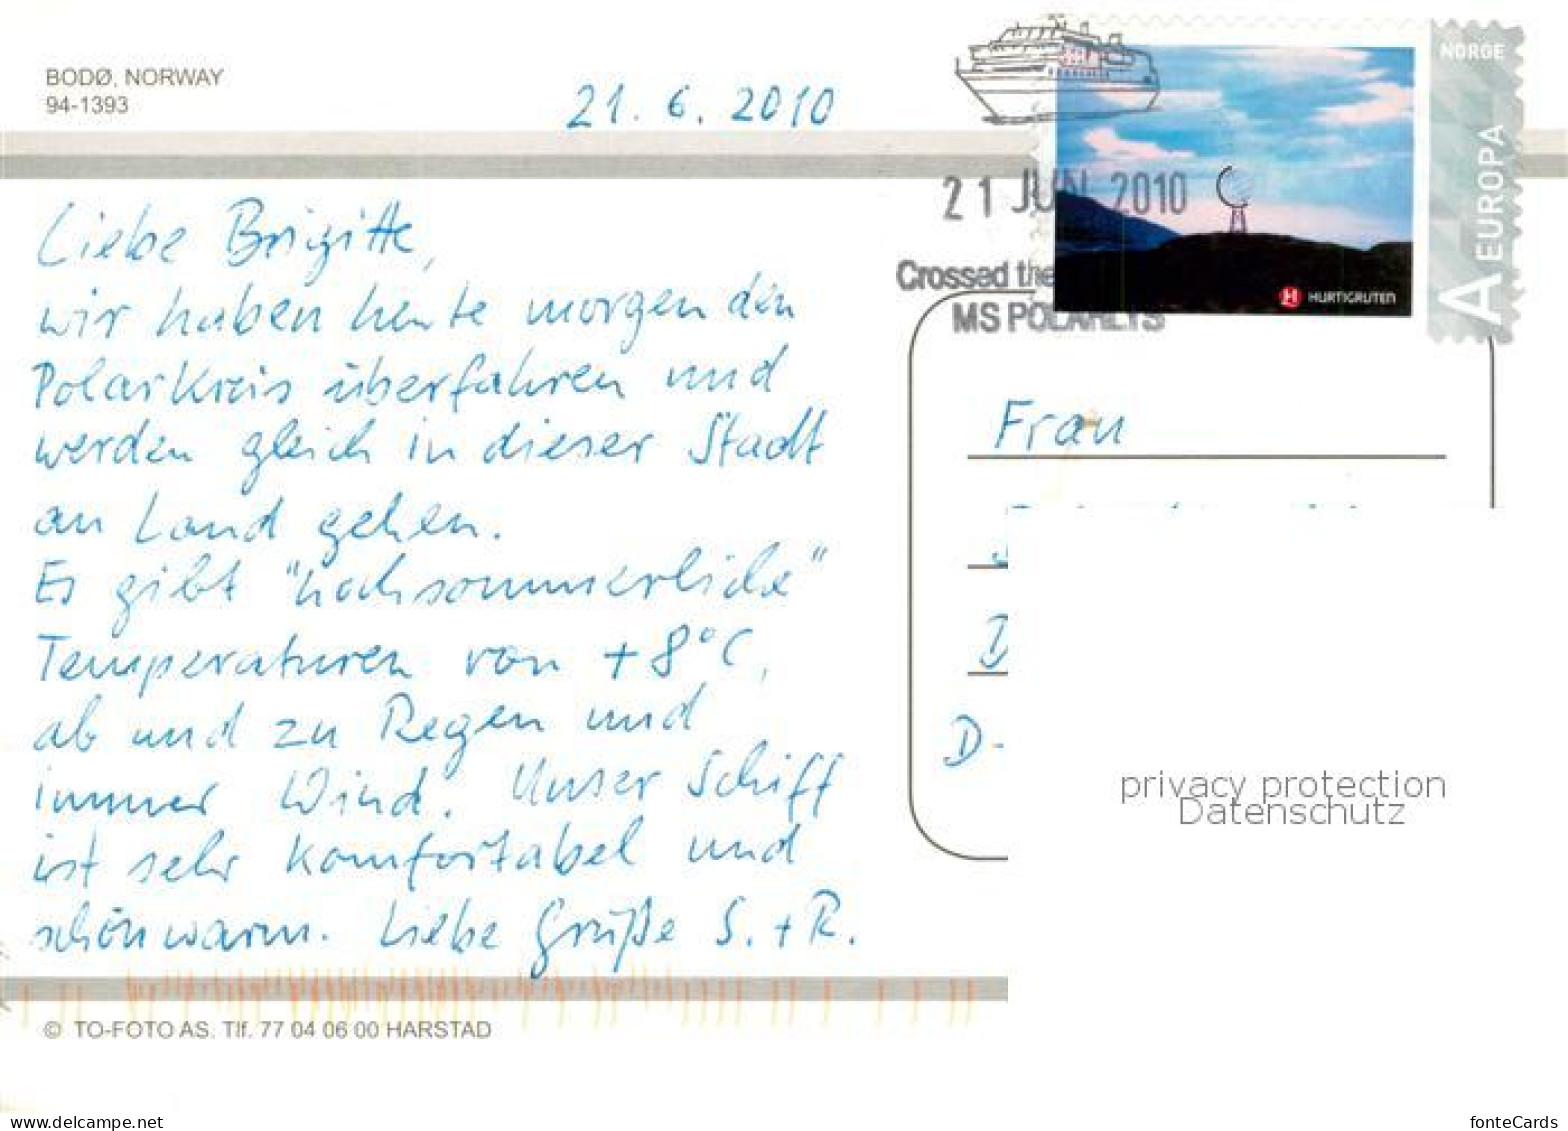 BODØ, NORWAY
94-1393
21. 6. 2010
NORGE
A EUROPA
HURTIGRUTEN
21 JUN 2010
Crossed the
MS POLARLYS
Liebe Brigitte,
wir haben heute morgen den
Polarkreis überfahren und
werden gleich in dieser Stadt
an Land gehen.
Es gibt "hochsommerliche"
Temperaturen von +8°C,
ab und zu Regen und
immer Wind. Unser Schiff
ist sehr komfortabel und
schön warm. Liebe Grüße S. + R.
Frau
D-
privacy protection
Datenschutz
© TO-FOTO AS. Tlf. 77 04 06 00 HARSTAD
www.delcampe.net
fonteCards